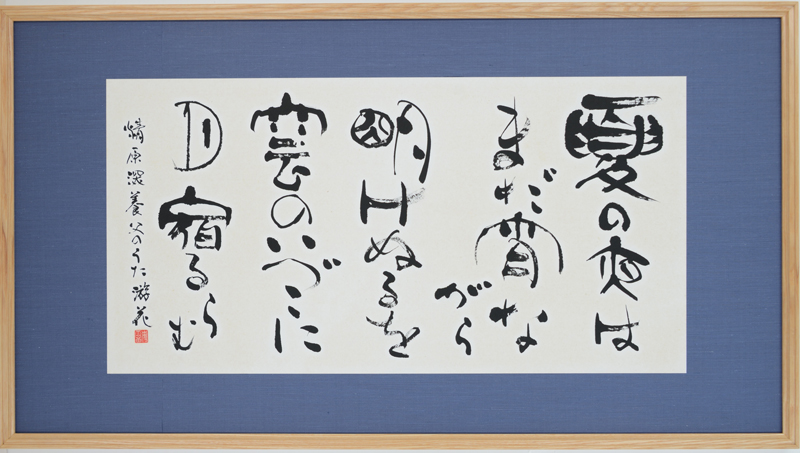 夏の夜は
まだ宵な
がら
明けぬるを
雲のいづこに
月宿るらむ
清原深養父のうた 游花